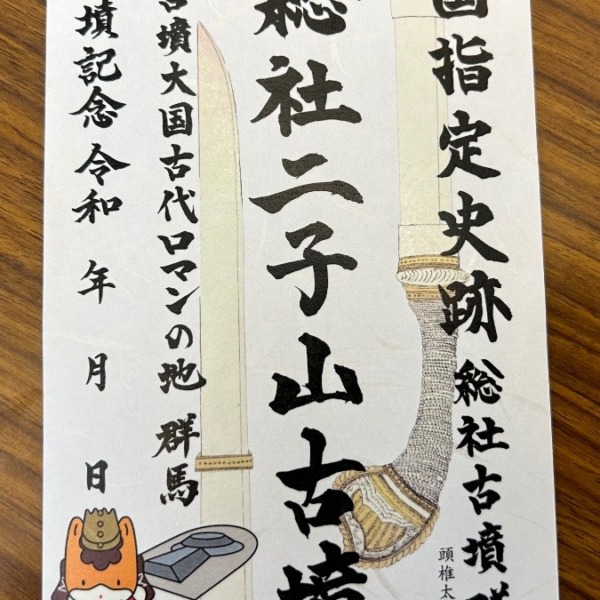 国指定史跡 総社古墳群
頭椎太
総社二子山古墳
古墳大国古代ロマンの地 群馬
墳記念 令和 年 月 日